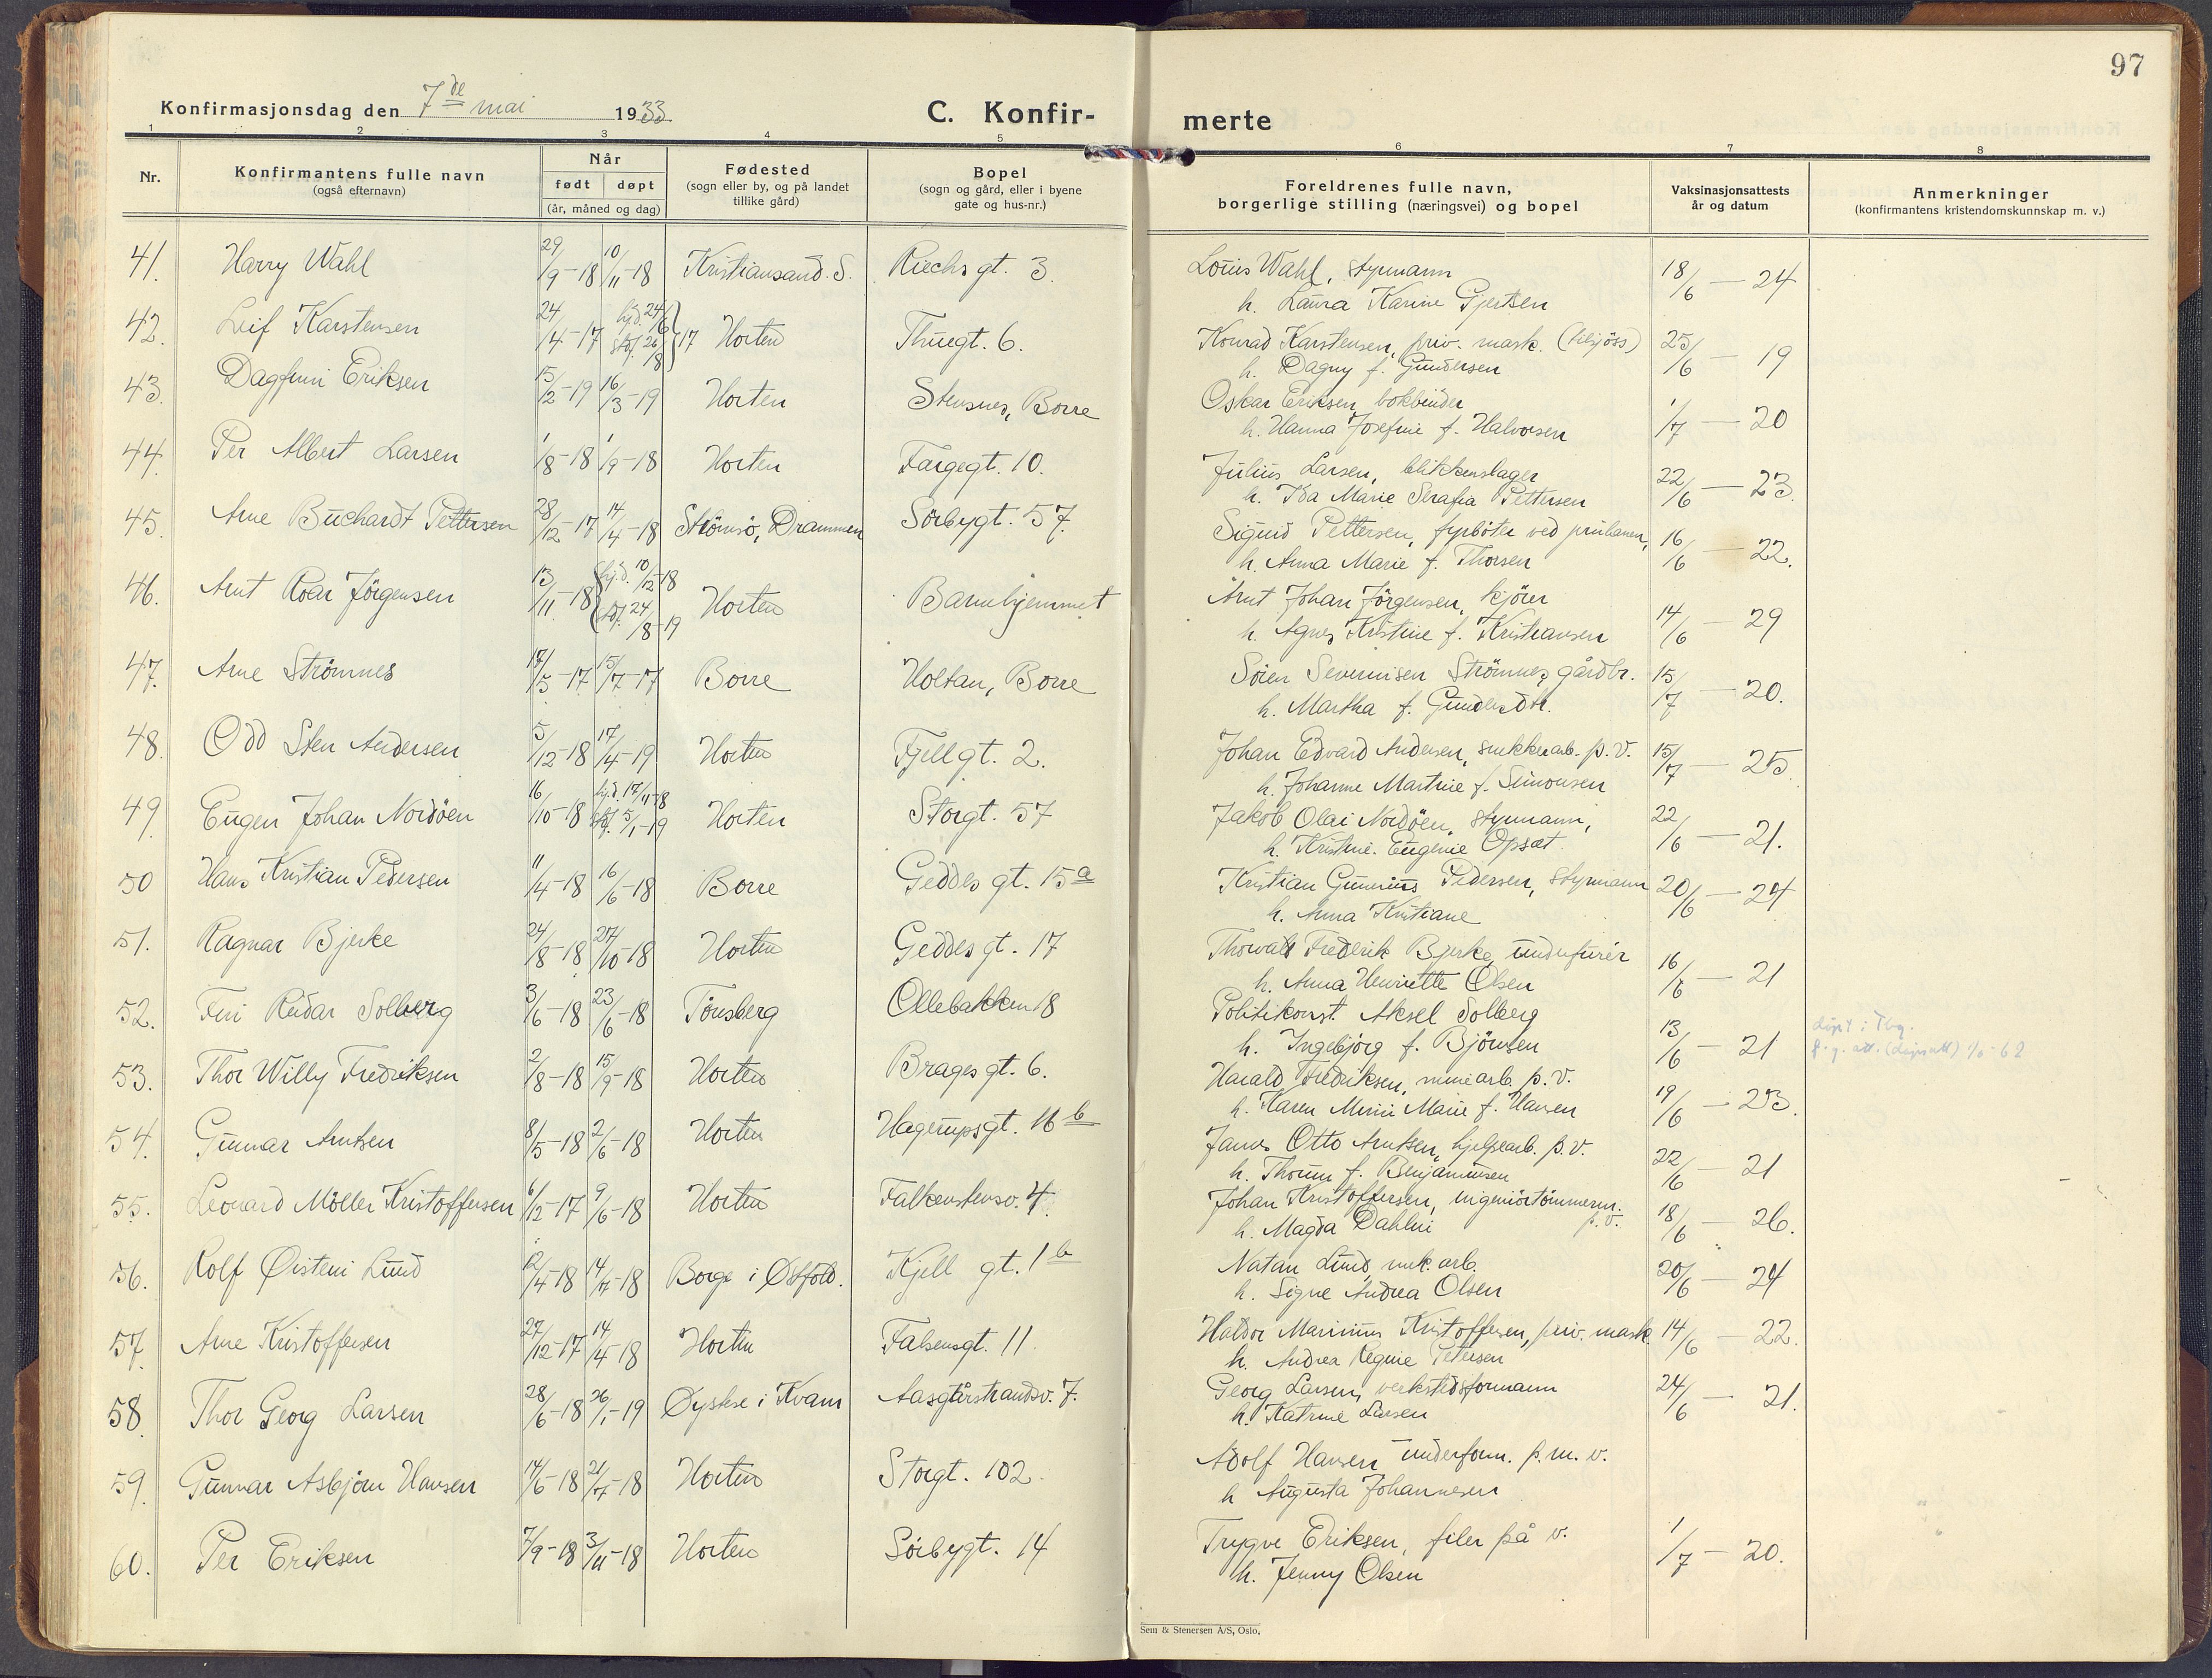 97
Konfirmasjonsdag den 7de mai 1933
C. Konfir-
merte
1 2 3 4 5 6 7 8
Nr.
Konfirmantens fulle navn
(også efternavn)
Når
født døpt
(år, måned og dag)
Fødested
(sogn eller by, og på landet
tillike gård)
Bopel
(sogn og gård, eller i byene
gate og hus-nr.)
Foreldrenes fulle navn,
borgerlige stilling (næringsvei) og bopel
Vaksinasjonsattests
år og datum
Anmerkninger
(konfirmantens kristendomskunnskap m. v.)
41. Harry Wahl 29/9-18 10/11-18 Kristiansand. S. Riechs gt. 3. Louis Wahl, styrmann 18/6 — 24
h. Laura Karine Gjertsen
42. Leif Karstensen 24/4-17 hjd. 24/6 stdf. 26/8 } 17 Horten Thuegt. 6. Konrad Karstensen, priv. mask. (tilsjöss) 25/6 — 19
h. Dagny f. Gundersen
43. Dagfinn Eriksen 15/2-19 16/3-19 Horten Stensnes, Borre Oskar Eriksen, bokbinder 1/7 — 20
h. Hanna Josefine f. Halvorsen
44. Per Albert Larsen 1/8-18 1/9-18 Horten Fargegt. 10. Julius Larsen, blikkenslager 22/6 — 23.
h. Ida Marie Serafia Pettersen
45. Arne Buchardt Pettersen 28/12-17 14/4-18 Strömsö, Drammen Sörbygt. 57. Sigurd Pettersen, fyrböter ved privbanen, 16/6 — 22.
h. Anna Marie f. Thorsen
46. Arnt Roar Jörgensen 13/11-18 hjd. 10/12-18 stdf. 24/8-19 Horten Barnehjemmet Arnt Johan Jörgensen, kjörer 14/6 — 29
h. Agnes Kristine f. Kristiansen
47. Arne Strömnes 17/5-17 15/7-17 Borre Holtan, Borre Sören Severinsen Strömnes, gårdbr. 15/7 — 20.
h. Martha f. Gundersdtr.
48. Odd Sten Andersen 5/12-18 17/4-19 Horten Fjellgt. 2. Johan Edvard Andersen, snekkerarb. p. v. 15/7 — 25
h. Johanne Martine f. Simonsen
49. Eugen Johan Nordöen 16/10-18 hjd. 17/11-18 stdf. 5/1-19 Horten Storgt. 57 Jakob Olai Nordöen, styrmann, 22/6 — 21.
h. Kristine Eugenie Opsæt.
50 Hans Kristian Pedersen 11/4-18 16/6-18 Borre Geddes gt. 15 a Kristian Gunerius Pedersen, styrmann 20/6 — 24
h. Anna Kristiane
51. Ragnar Bjerke 24/8-18 27/10-18 Horten Geddes gt. 17 Thorvald Fredrik Bjerke, underfurér 16/6 — 21
h. Anna Henriette Olsen
52. Finn Reidar Solberg 3/6-18 23/6-18 Tönsberg Ollebakken 18 Politikonst. Aksel Solberg 13/6 — 21
h. Ingebjörg f. Björnsen
döpt i Tbg.
53. Thor Willy Fredriksen 2/8-18 15/9-18 Horten Brages gt. 6. Harald Fredriksen, minearb. p. v. 19/6 — 23.
h. Karen Mimi Marie f. Hansen
54. Gunnar Arntsen 8/5-18 2/6-18 Horten Hagerupsgt. 16 b Jauvs Otto Arntsen, hjelpearb. p. v. 22/6 — 21
h. Thorun f. Benjaminsen
55. Leonard Möller Kristoffersen 6/12-17 9/6-18 Horten Falkenstensv. 4. Johan Kristoffersen, ingeniörtömmerm. p. v. 18/6 — 26.
h. Magda Dahlin
56. Rolf Øistein Lund 12/4-18 14/7-18 Borge i Østfold. Kjell gt. 1 b Natan Lund, mek. arb. 20/6 — 24
h. Signe Andrea Olsen
57. Arne Kristoffersen 27/12-17 14/4-18 Horten Falsensgt. 11 Haldor Marinius Kristoffersen, priv. mask. 14/6 — 22.
h. Andrea Regine Petersen
58. Thor Georg Larsen 28/6-18 26/1-19 Øystese i Kvam Aasgårstrandsv. 7. Georg Larsen, verkstedsformann 24/6 — 21.
h. Katrine Larsen
59. Gunnar Asbjörn Hansen 14/6-18 21/7-18 Horten Storgt. 102. Adolf Hansen underform. p. m. v.
h Augusta Johannesen
60. Per Eriksen 7/9-18 3/11-18 Horten Sörbygt. 14 Trygve Eriksen, filer på v. 1/7 — 20.
h. Jenny Olsen
Sem & Stenersen A/S, Oslo.